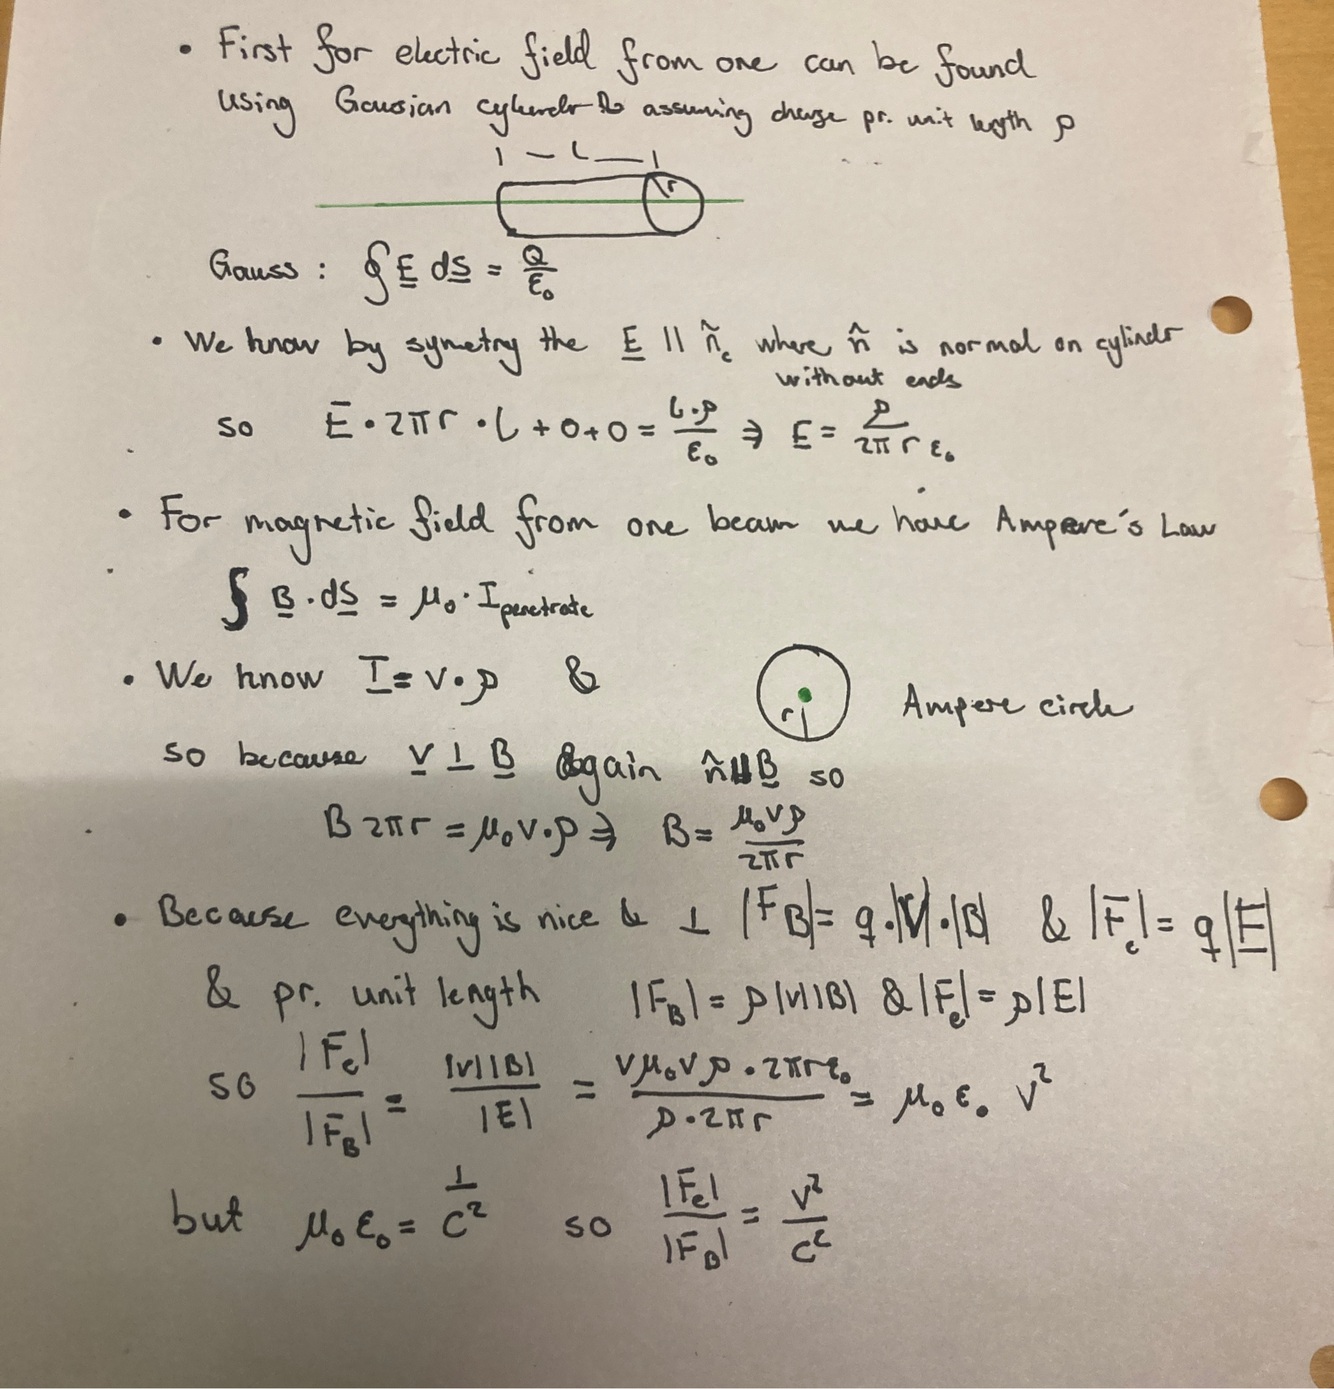 • First for electric field from one can be found
using Gausian cylinder assuming charge pr. unit length ρ
|— L —|
r
Gauss : ∮ E dS = Q/ε₀
• We know by symetry the E || n̂c where n̂ is normal on cylinder
without ends
so E · 2πr · L + 0 + 0 = L·ρ/ε₀ ⇒ E = ρ/2πrε₀
• For magnetic field from one beam we have Ampere's Law
∮ B · dS = μ₀ · I penetrate
• We know I = v · ρ &
r
Ampere circle
so because v ⊥ B again n̂ || B so
B 2πr = μ₀ v · ρ ⇒ B = μ₀vρ/2πr
• Because everything is nice & ⊥ |F_B| = q · |V| · |B| & |F_e| = q|E|
& pr. unit length |F_B| = ρ|v||B| & |F_e| = ρ|E|
so |F_e|/|F_B| = |v||B|/|E| = vμ₀vρ · 2πrε₀/ρ · 2πr = μ₀ε₀ v²
but μ₀ε₀ = 1/c² so |F_e|/|F_B| = v²/c²